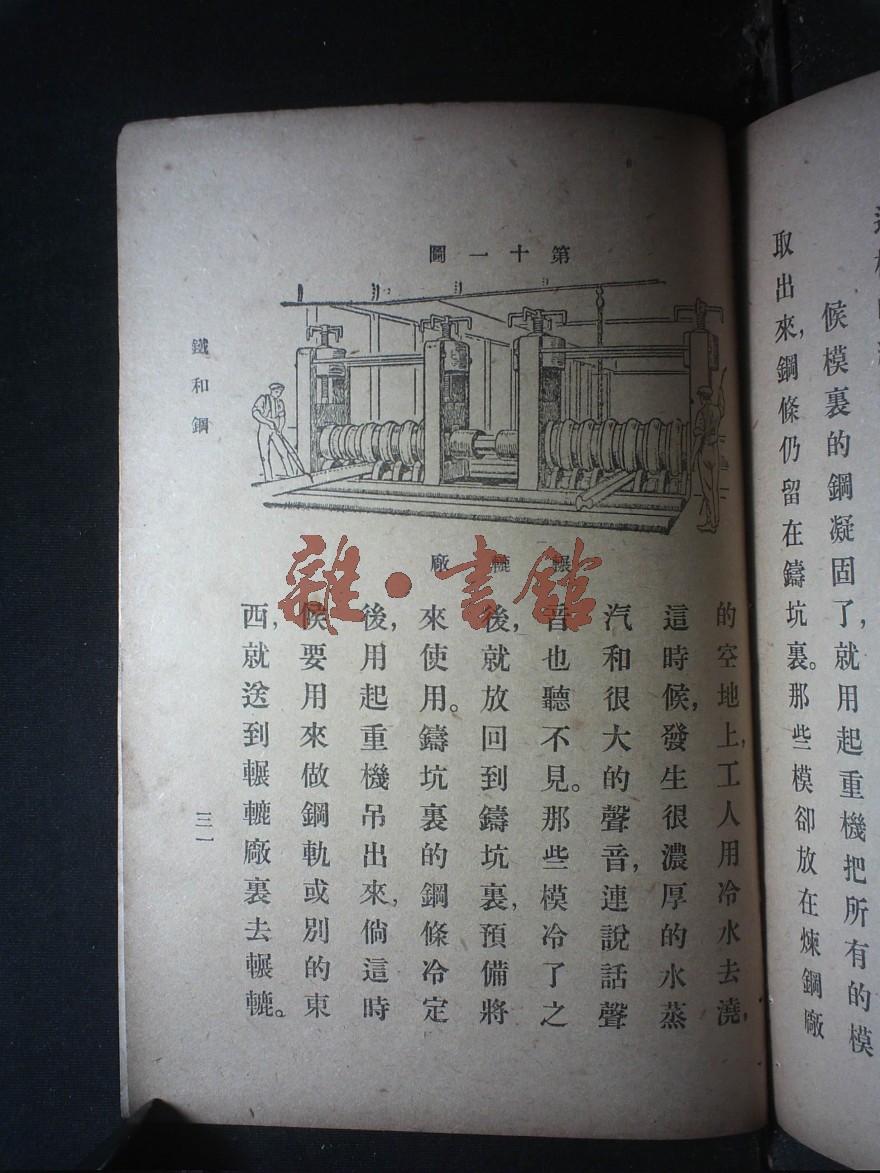 候模裏的鋼凝固了,就用起重機把所有的模
取出來,鋼條仍留在鑄坑裏。那些模卻放在煉鋼廠
第十一圖
輾轆廠
的空地上,工人用冷水去澆,
這時候,發生很濃厚的水蒸
汽和很大的聲音,連說話聲
音也聽不見。那些模冷了之
後,就放回到鑄坑裏,預備將
來使用。鑄坑裏的鋼條冷定
後,用起重機吊出來,倘這時
候要用來做鋼軌或別的東
西,就送到輾轆廠裏去輾轆。
鐵和鋼
三一
雜·書館